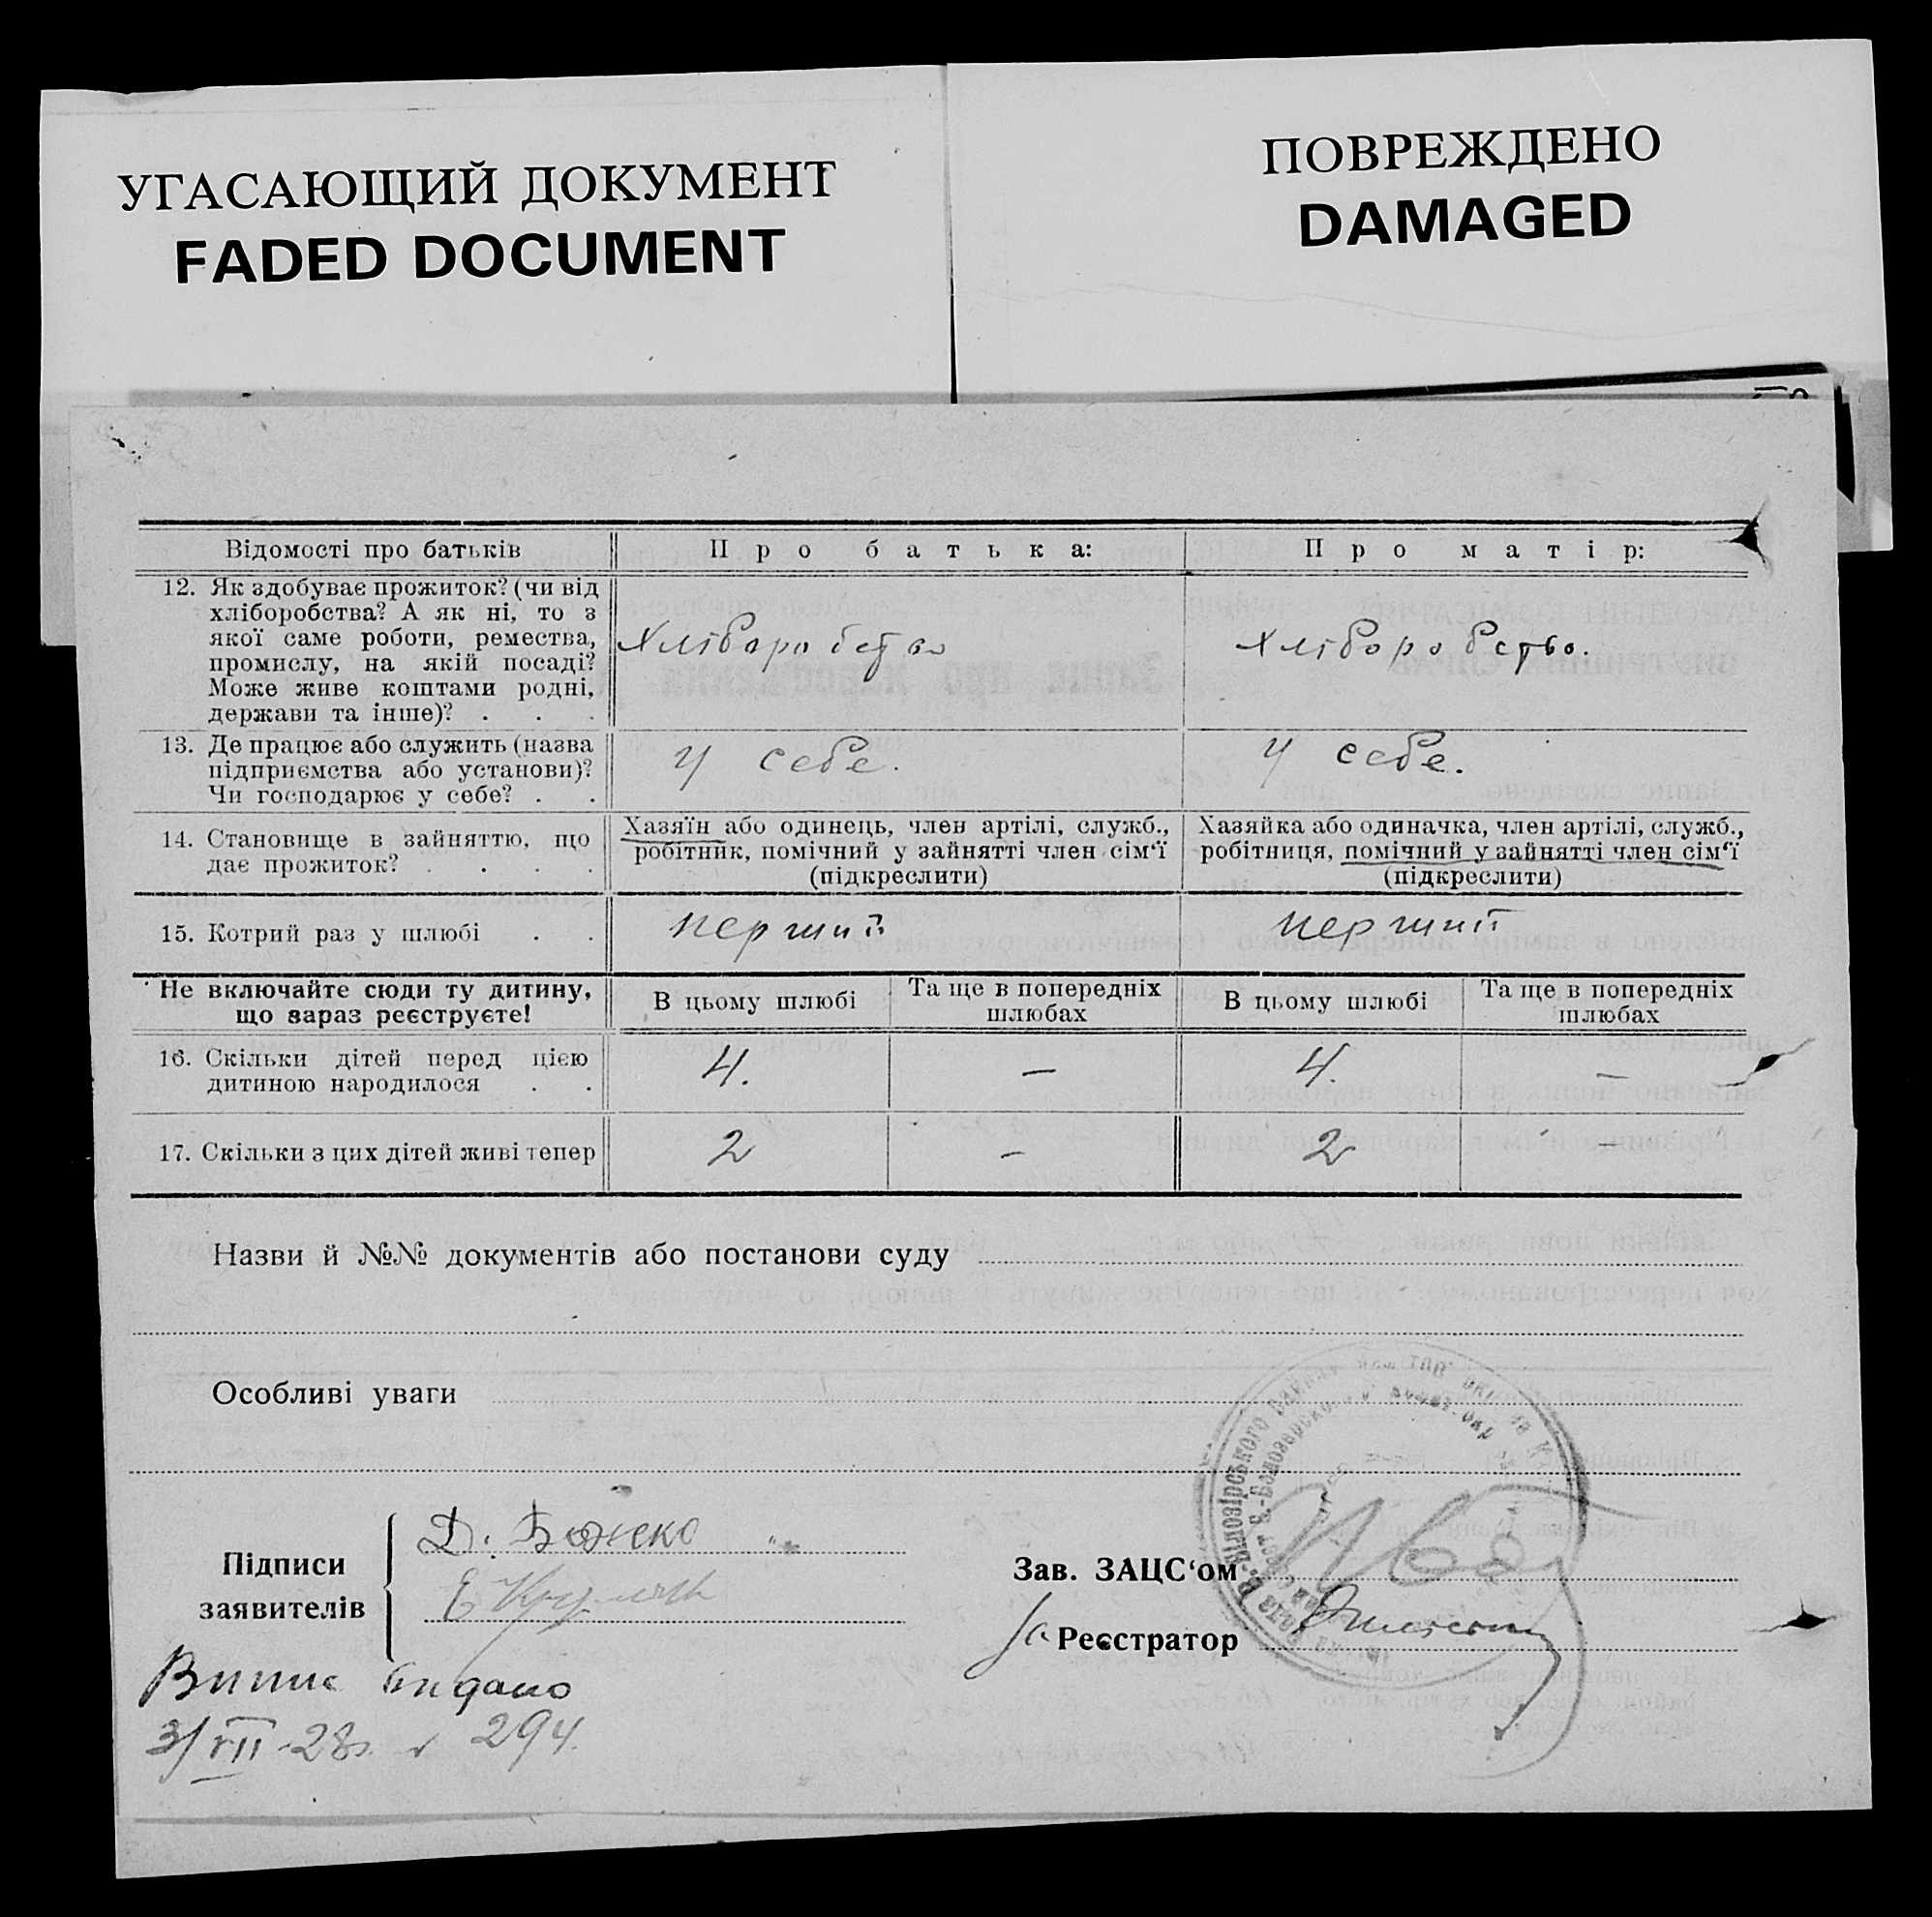 УГАСАЮЩИЙ ДОКУМЕНТ
FADED DOCUMENT
ПОВРЕЖДЕНО
DAMAGED
Відомості про батьків
Про батька:
Про матір:
12. Як здобуває прожиток? (чи від
хліборобства? А як ні, то з
якої саме роботи, ремества,
промислу, на якій посаді?
Може живе коштами родні,
держави та інше)? . . .
Хліборобство
Хліборобство.
13. Де працює або служить (назва
підприємства або установи)?
Чи господарює у себе? . .
У себе.
У себе.
14. Становище в зайняттю, що
дає прожиток? . . . .
Хазяїн або одинець, член артілі, служб.,
робітник, помічний у зайнятті член сім‘ї
(підкреслити)
Хазяйка або одиначка, член артілі, служб.,
робітниця, помічний у зайнятті член сім‘ї
(підкреслити)
15. Котрий раз у шлюбі . .
перший
перший
Не включайте сюди ту дитину,
що зараз реєструєте!
В цьому шлюбі
Та ще в попередніх
шлюбах
В цьому шлюбі
Та ще в попередніх
шлюбах
16. Скільки дітей перед цією
дитиною народилося . .
4.
—
4.
—
17. Скільки з цих дітей живі тепер
2
—
2
—
Назви й №№ документів або постанови суду
Особливі уваги
Підписи
заявителів
Д. Божко
Е
Зав. ЗАЦС‘ом
За Реєстратор
В.-Білозірського
Випис видано
3/VII-28 294.